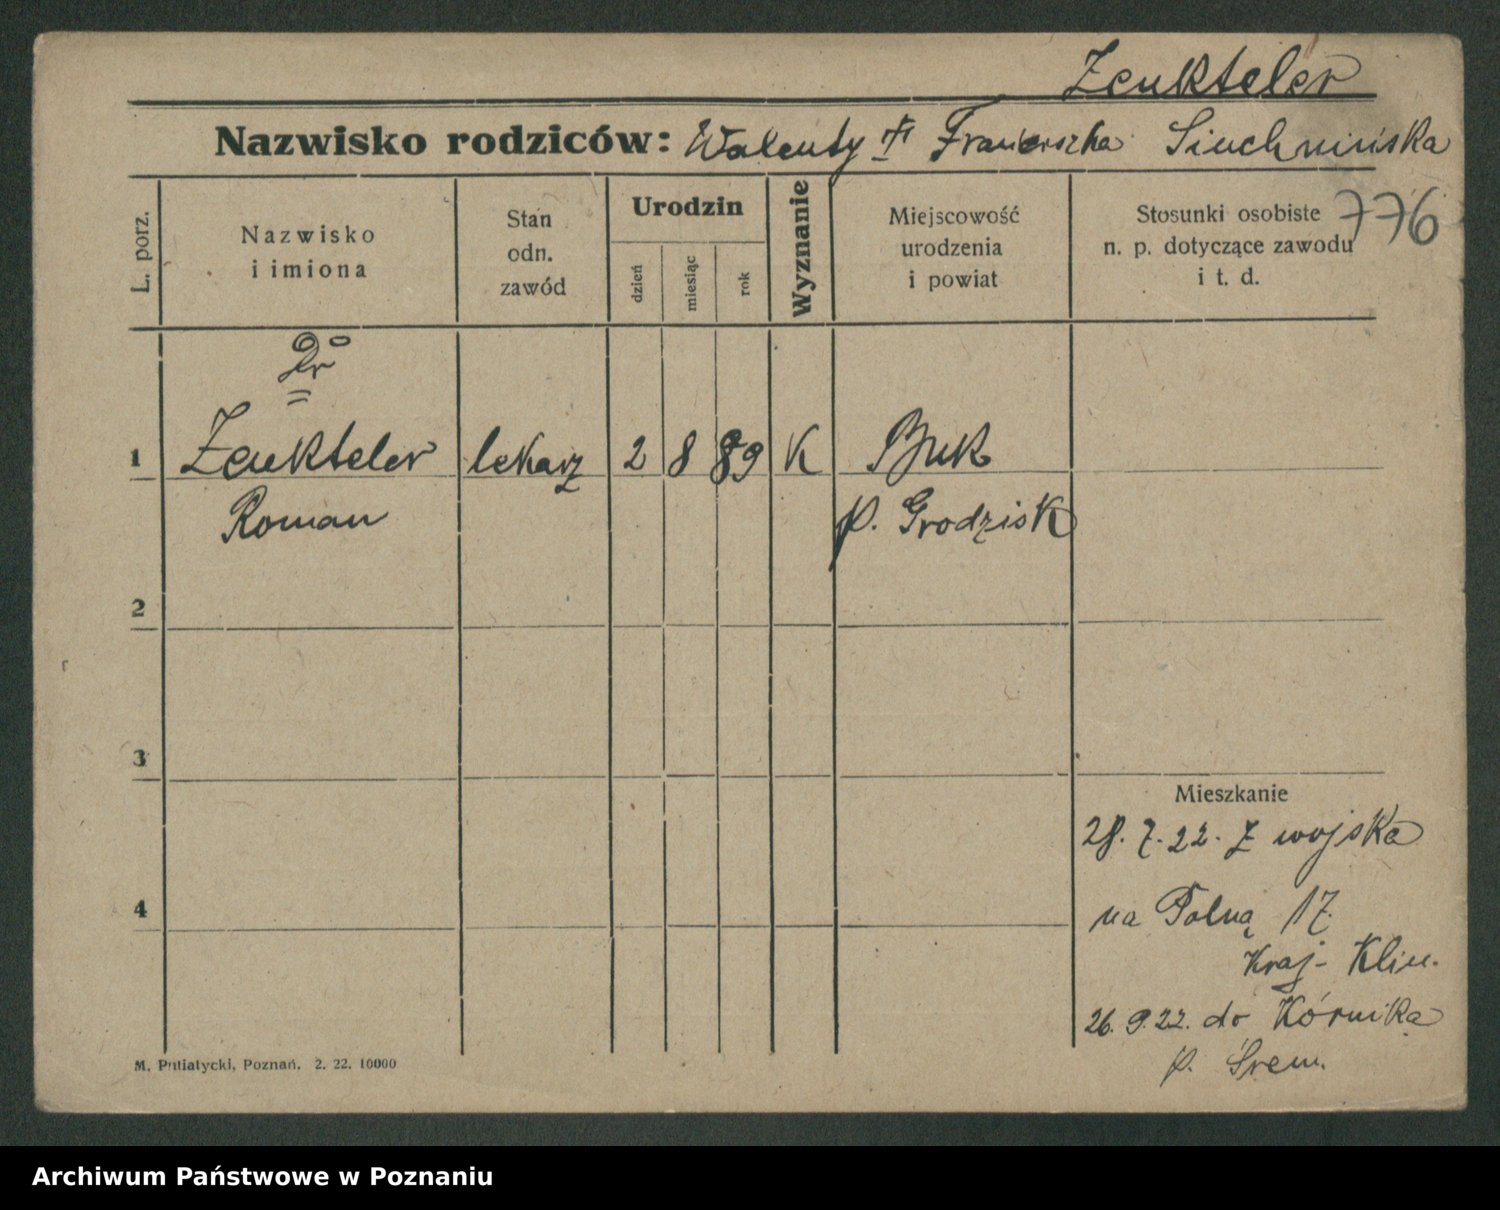 Zenkteler
Nazwisko rodziców: Walenty Franciszka Siuchnińska
776
L. porz.
Nazwisko
i imiona
Stan
odn.
zawód
Urodzin
dzień
miesiąc
rok
Wyznanie
Miejscowość
urodzenia
i powiat
Stosunki osobiste
n. p. dotyczące zawodu
i t. d.
Dr
1 Zenkteler lekarz 2 8 89 K Buk
Roman p. Grodzisk
2
3
Mieszkanie
28. 7. 22. Z wojska
4
na Polną 17.
Kraj- Klin.
26. 9. 22. do Kórnika
p. Śrem.
M. Putiatycki, Poznań. 2. 22. 10000
Archiwum Państwowe w Poznaniu